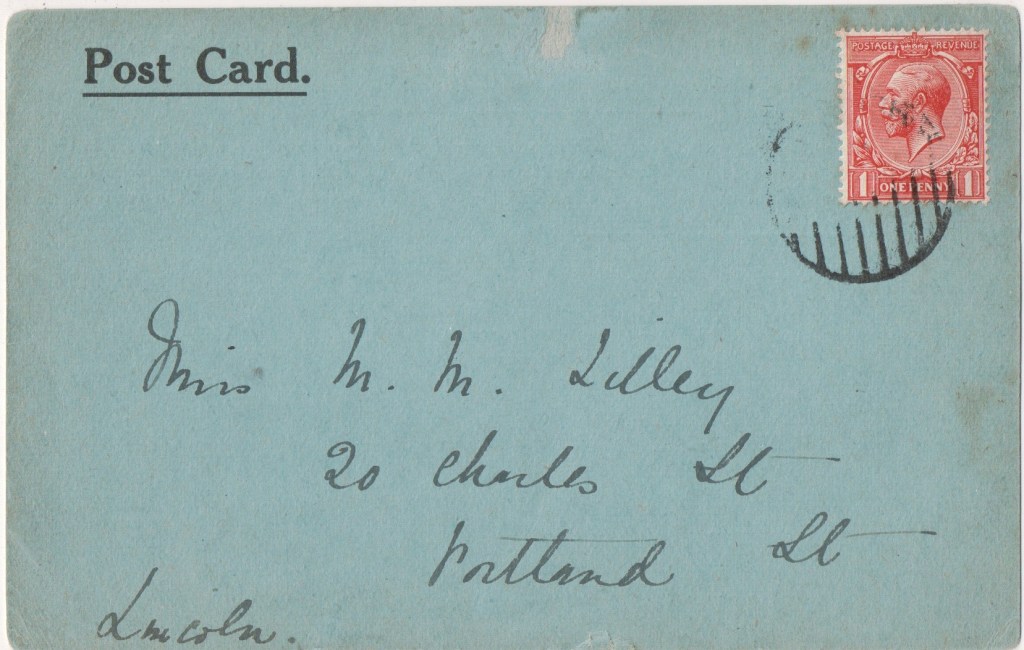 Post Card.
POSTAGE REVENUE
1 ONE PENNY 1
Miss M. M. Lilley
20 Charles St
Portland St
Lincoln.